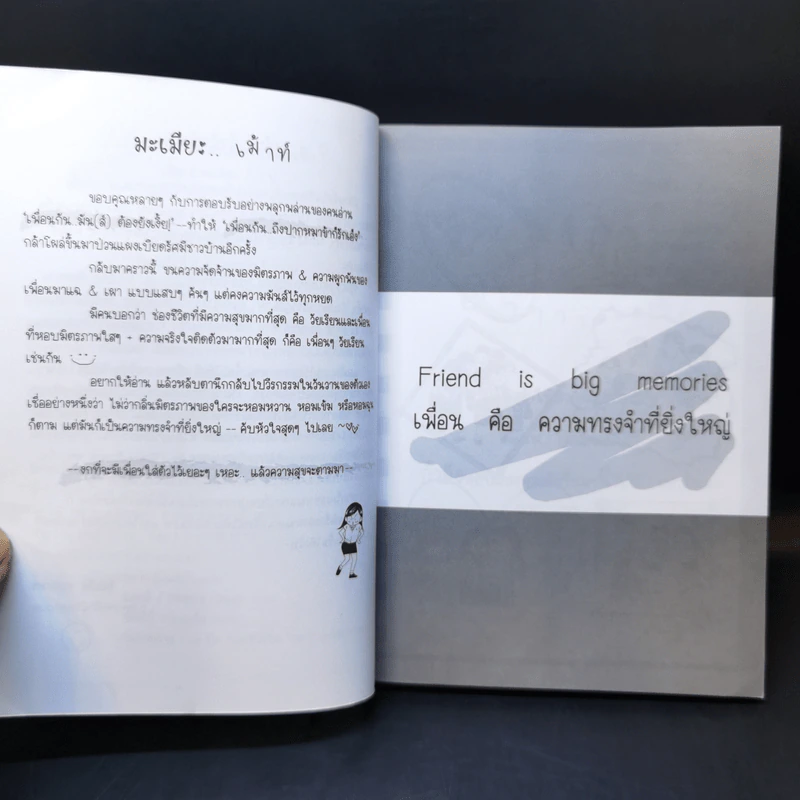 มะเมียะ.. เม้าท์
ขอบคุณหลายๆ กับการตอบรับอย่างพลุกพล่านของคนอ่าน
"เพื่อนกัน..มัน(ส์) ต้องยังเงี้ย!" --ทำให้ "เพื่อนกัน..ถึงปากหมาข้าก็รักเอ็ง"
กล้าโผล่ขึ้นมาป่วนแผงเบียดรัศมีชาวบ้านอีกครั้ง
กลับมาคราวนี้ ขนความจัดจ้านของมิตรภาพ & ความผูกพันของ
เพื่อนมาแฉ & เผา แบบแสบๆ คันๆ แต่คงความมันส์ไว้ทุกหยด
มีคนบอกว่า ช่วงชีวิตที่มีความสุขมากที่สุด คือ วัยเรียนและเพื่อน
ที่หอบมิตรภาพใสๆ + ความจริงใจติดตัวมามากที่สุด ก็คือ เพื่อนๆ วัยเรียน
เช่นกัน
อยากให้อ่าน แล้วหลับตานึกกลับไปวีรกรรมในวันวานของตัวเอง
เชื่ออย่างหนึ่งว่า ไม่ว่ากลิ่นมิตรภาพของใครจะหอมหวาน หอมเข้ม หรือหอมฉุน
ก็ตาม แต่มันก็เป็นความทรงจำที่ยิ่งใหญ่ -- คับหัวใจสุดๆ ไปเลย ~♥♥
--งกที่จะมีเพื่อนใส่ตัวไว้เยอะๆ เหอะ.. แล้วความสุขจะตามมา--
Friend is big memories
เพื่อน คือ ความทรงจำที่ยิ่งใหญ่